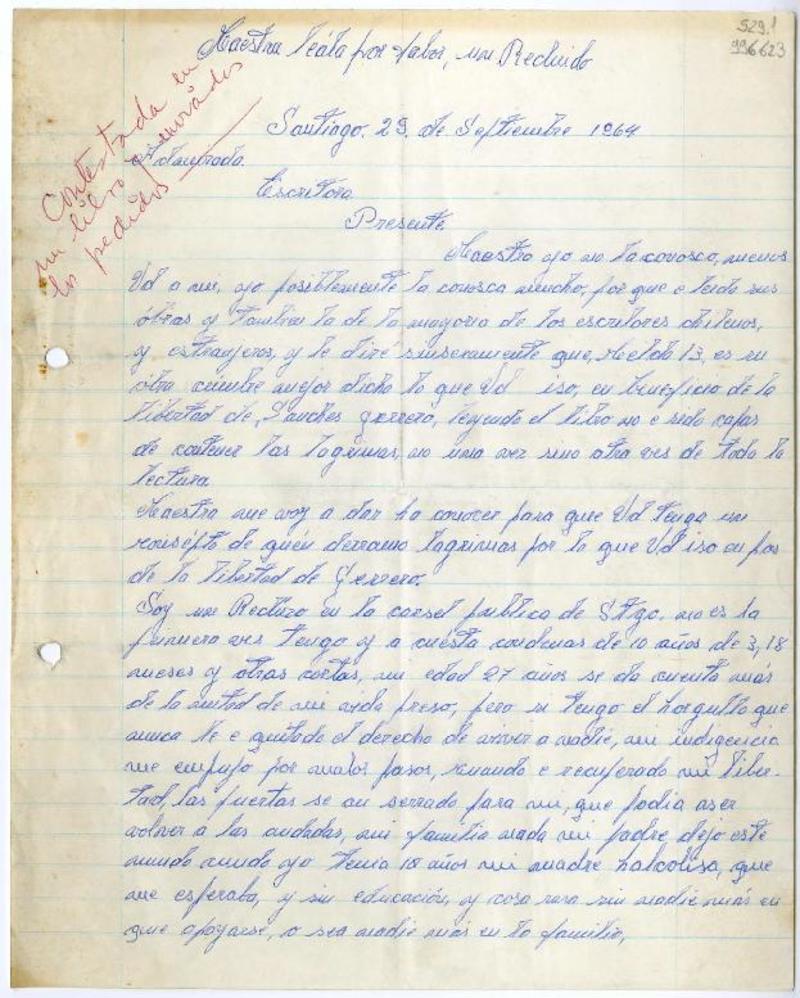 529.1
996623
Maestra leála por fabor, un Recluido
Contestada en
un libro y enviados
los pedidos
Santiago. 29. de Septiembre 1964
Escritora.
Presente.
Maestra yo no la conosco, menos
Ud a mi, yo posiblemente la conosca mucho, por que e leido sus
obras y tambien la de la mayoria de los escritores chilenos,
y estranjeros, y le diré sinseramente que, celda 13, es su
obra cumbre mejor dicho lo que Ud iso, en beneficio de la
libertad de, Sanches gerrero, leyendo el libro no e sido capas
de contener las lagrimas, no una ves sino otra ves de toda la
lectura.
Maestra me voy a dar ha conocer para que Ud tenga un
consépto de quén derramo lagrimas por lo que Ud iso en pos
de la libertad de Gerrero.
Soy un Recluzo en la carsel publica de Stgo. no es la
primera ves tengo y a cuésta condenas de 10 años de 3, 18
meses y otras cortas, mi edad 27 años se da cuenta más
de la mitad de mi vida preso, pero si tengo el horgullo que
nunca le e quitado el derecho de vivir a nadie, mi indigencia
me empujo por malos pasos, cuando e recuperado mi liber-
tad, las puertas se an serrado para mi, que podia aser
volver a las andadas, mi familia nada mi padre dejo este
mundo cuando yo tenia 10 años mi madre halcolisa, que
me esperaba, y sin educación, y cosa rara sin nadie más en
que apoyarse, o sea nadie más en la familia,